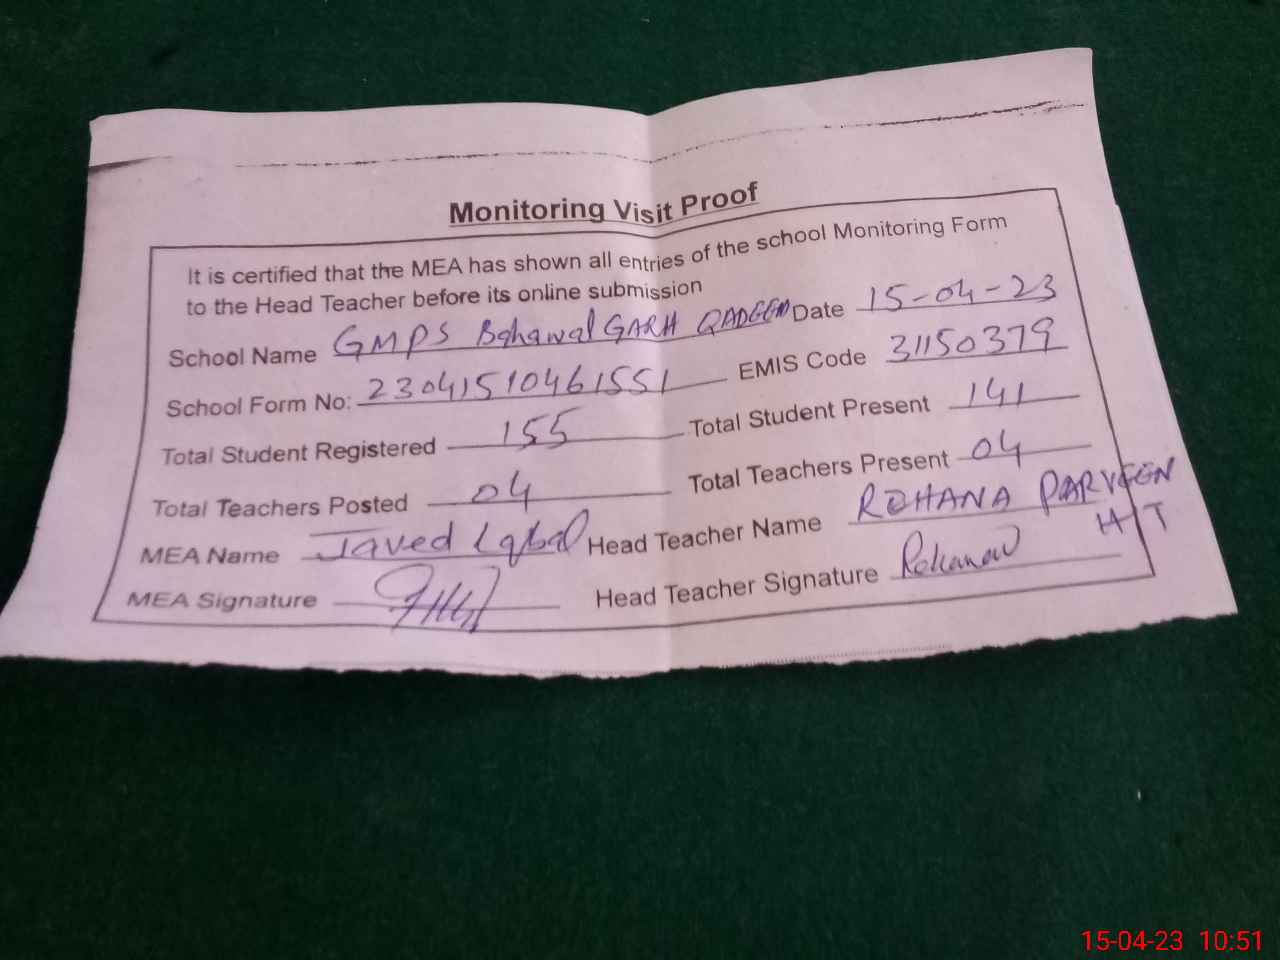 Monitoring Visit Proof
It is certified that the MEA has shown all entries of the school Monitoring Form
to the Head Teacher before its online submission
School Name GMPS Bahawal GARH QADEEM Date 15-04-23
School Form No: 23041510461551 EMIS Code 31150379
Total Student Registered 155 Total Student Present 141
Total Teachers Posted 04 Total Teachers Present 04
MEA Name Javed Iqbal Head Teacher Name REHANA PARVEEN
H/T
MEA Signature Head Teacher Signature
15-04-23 10:51